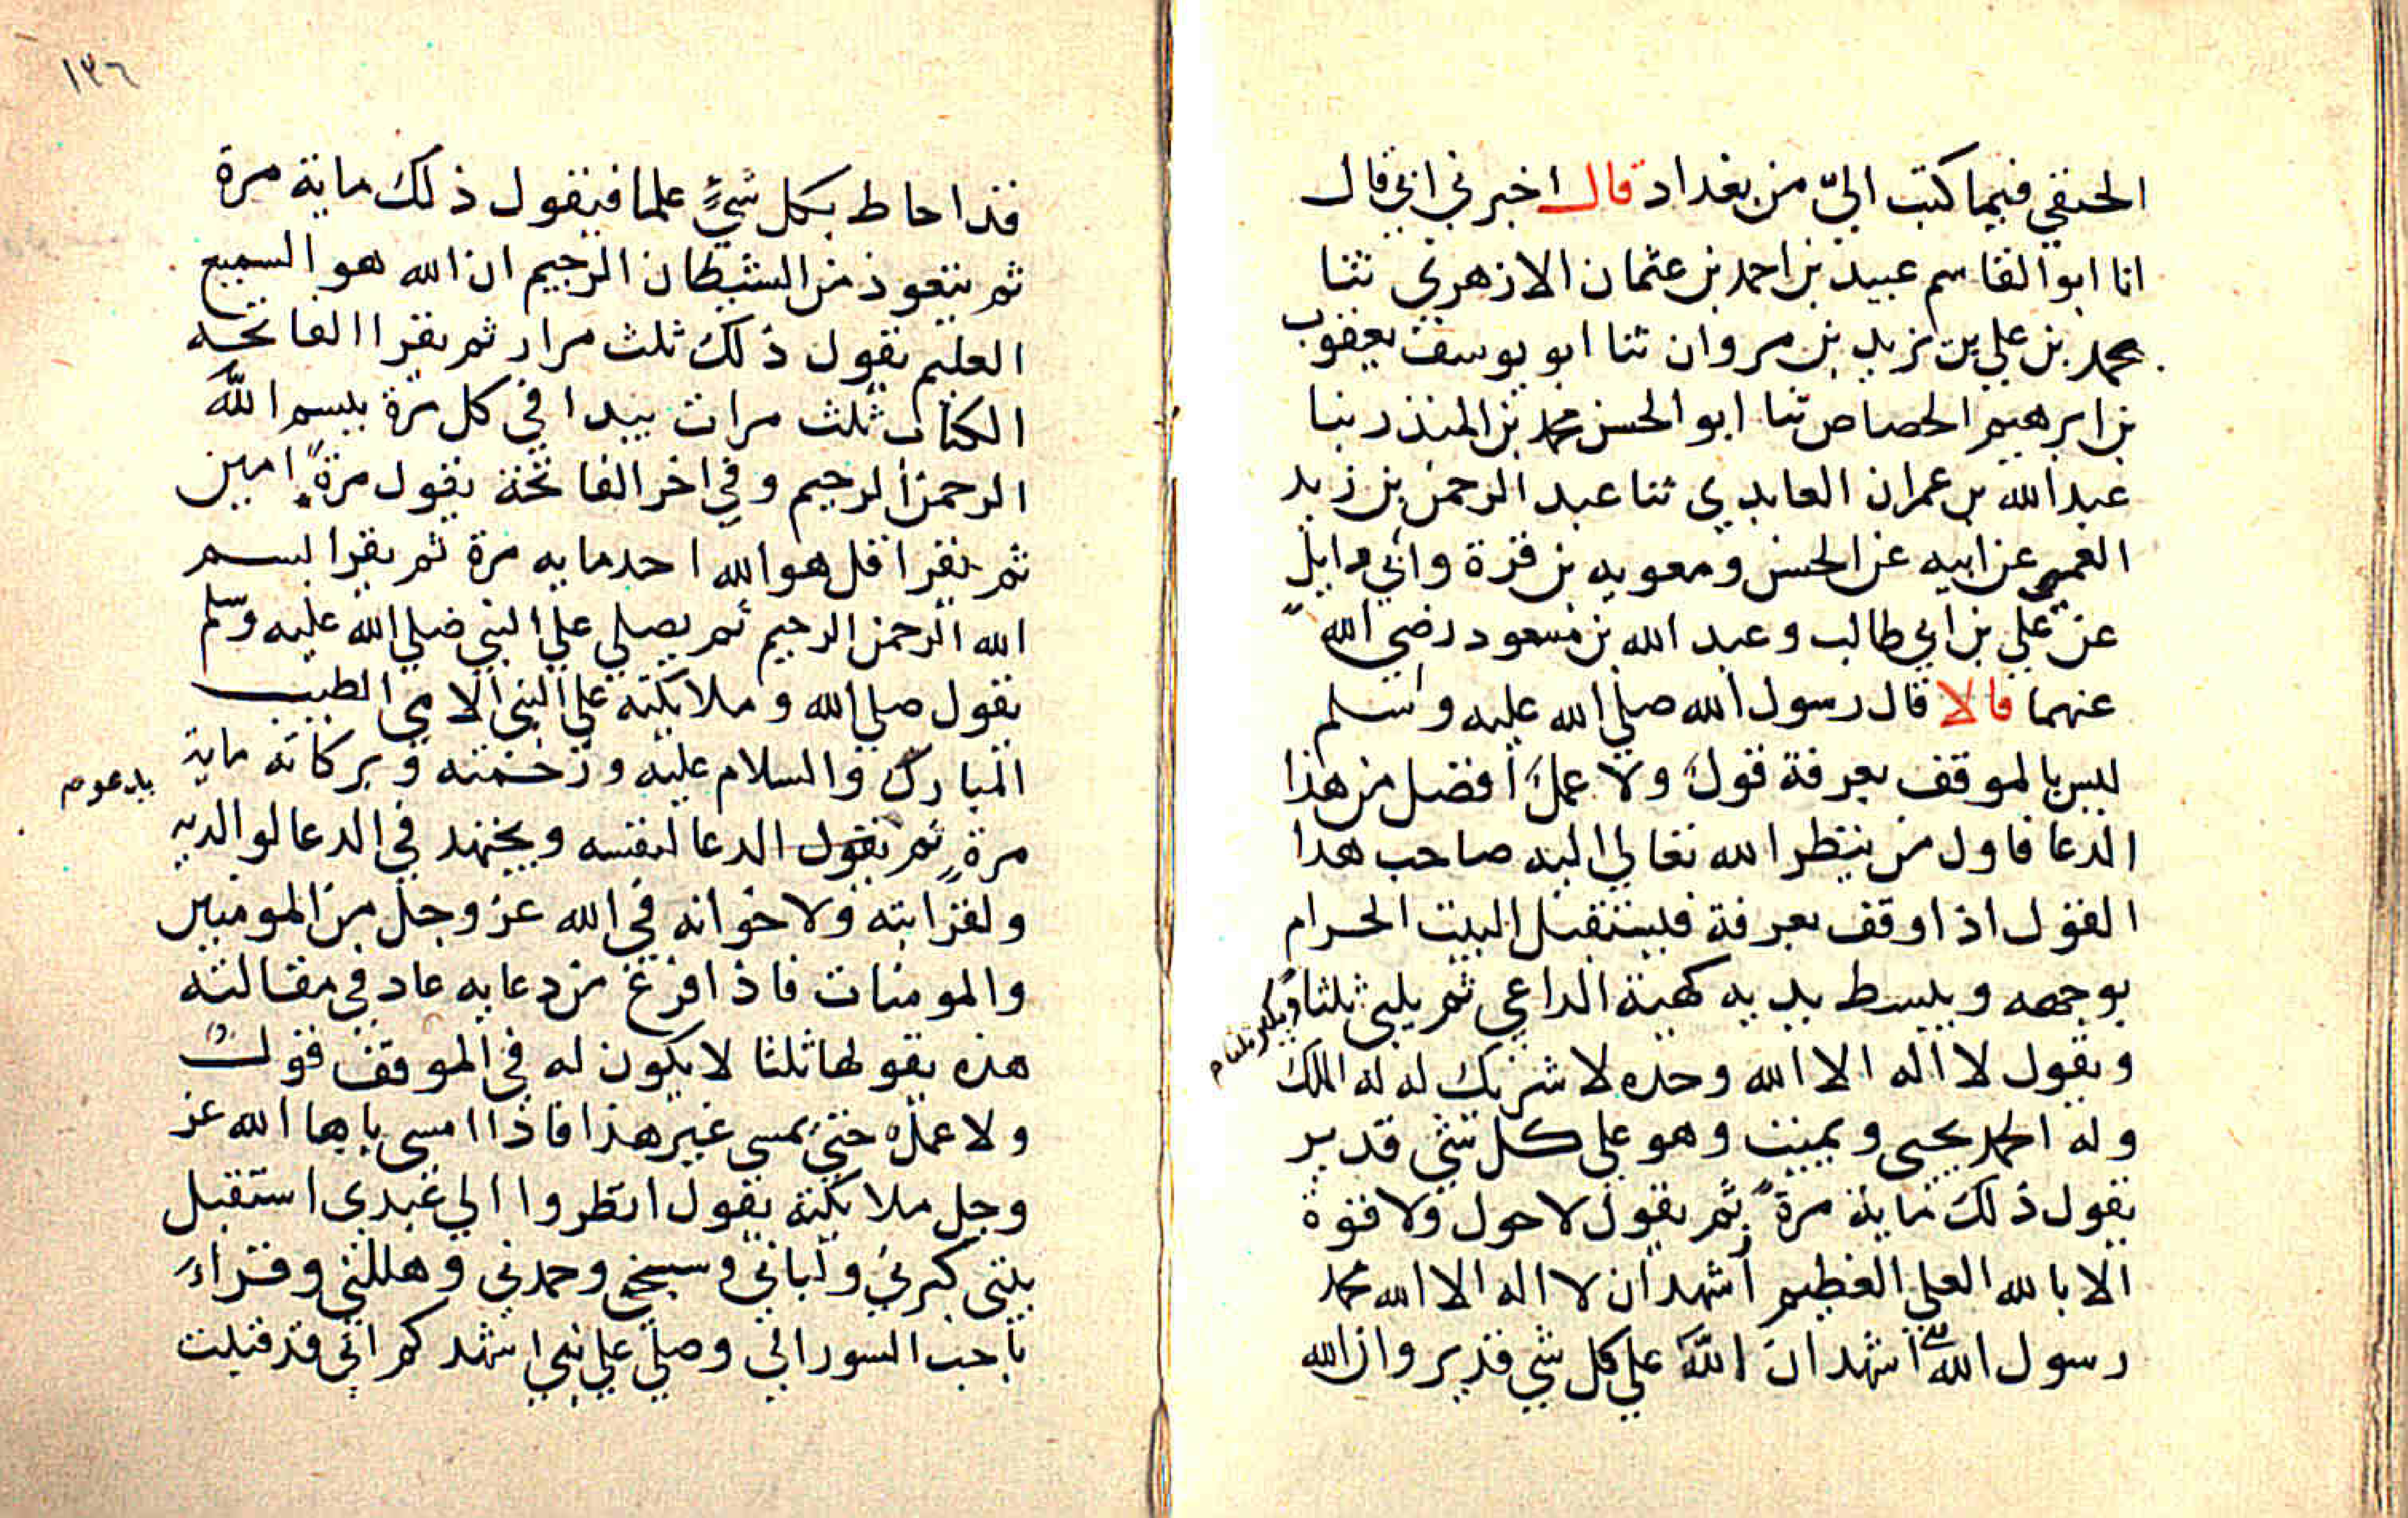 الحنفي فيما كتب اليّ من بغداد قال اخبرني ابي قال
انا ابو القاسم عبيد بن احمد بن عثمان الازهري ثنا
محمد بن علي بن زيد بن مروان ثنا ابو يوسف يعقوب
بن ابرهيم الحصاص ثنا ابو الحسن محمد بن المنذر ثنا
عبد الله بن عمران العابدي ثنا عبد الرحمن بن زيد
العمي عن ابيه عن الحسن ومعويه بن قرة وابي وايل
عن علي بن ابي طالب وعبد الله بن مسعود رضي الله
عنهما قالا قال رسول الله صلي الله عليه وسلم
ليس بالموقف بعرفة قول ولا عمل افضل من هذا
الدعا فاول من ينظر الله تعالي اليه صاحب هذا
القول اذا وقف بعرفة فليستقبل البيت الحرام
بوجهه ويبسط يديه كهيئة الداعي ثم يلبي ثلثا
ويكبر ثلثا م
ويقول لا اله الا الله وحده لا شريك له له الملك
وله الحمد يحيى ويميت وهو علي كل شي قدير
يقول ذلك ماية مرة ثم يقول لا حول ولا قوة
الا بالله العلي العظيم اشهد ان لا اله الا الله محمد
رسول الله اشهد ان اللهَ علي كل شي قدير وان الله
١٣٦
قد احاط بكل شيءٍ علما فيقول ذلك ماية مرة
ثم يتعوذ من الشيطان الرجيم ان الله هو السميع
العليم يقول ذلك ثلث مرار ثم يقرا الفاتحه
الكتاب ثلث مرات يبدا في كل مرة ببسم الله
الرحمن الرحيم وفي اخر الفاتحة يقول مرةً امين
ثم يقرا قل هو الله احد مايه مرة ثم يقرا بسم
الله الرحمن الرحيم ثم يصلي علي النبي صلي الله عليه وسلم
يقول صلي الله وملايكته علي النبي الامي الطيب
المبارك والسلام عليه ورحمته وبركاته ماية
يدعو م
مرةٍ ثم يقول الدعا لنفسه ويجتهد في الدعا لوالديه
ولقرابته ولاخوانه في الله عز وجل من المومنين
والمومنات فاذا فرغ من دعايه عاد في مقالته
هذه يقولها ثلثا لا يكون له في الموقف قول
ولا عمل حتي يمسى غير هذا فاذا امسى باها الله عز
وجل ملايكته يقول انظروا الي عبدي استقبل
بيتي كبرني ولباني وسبحني وحمدني وهللني وقراء
باحب السور الي وصلي علي نبيي اشهدكم اني قد قبلت